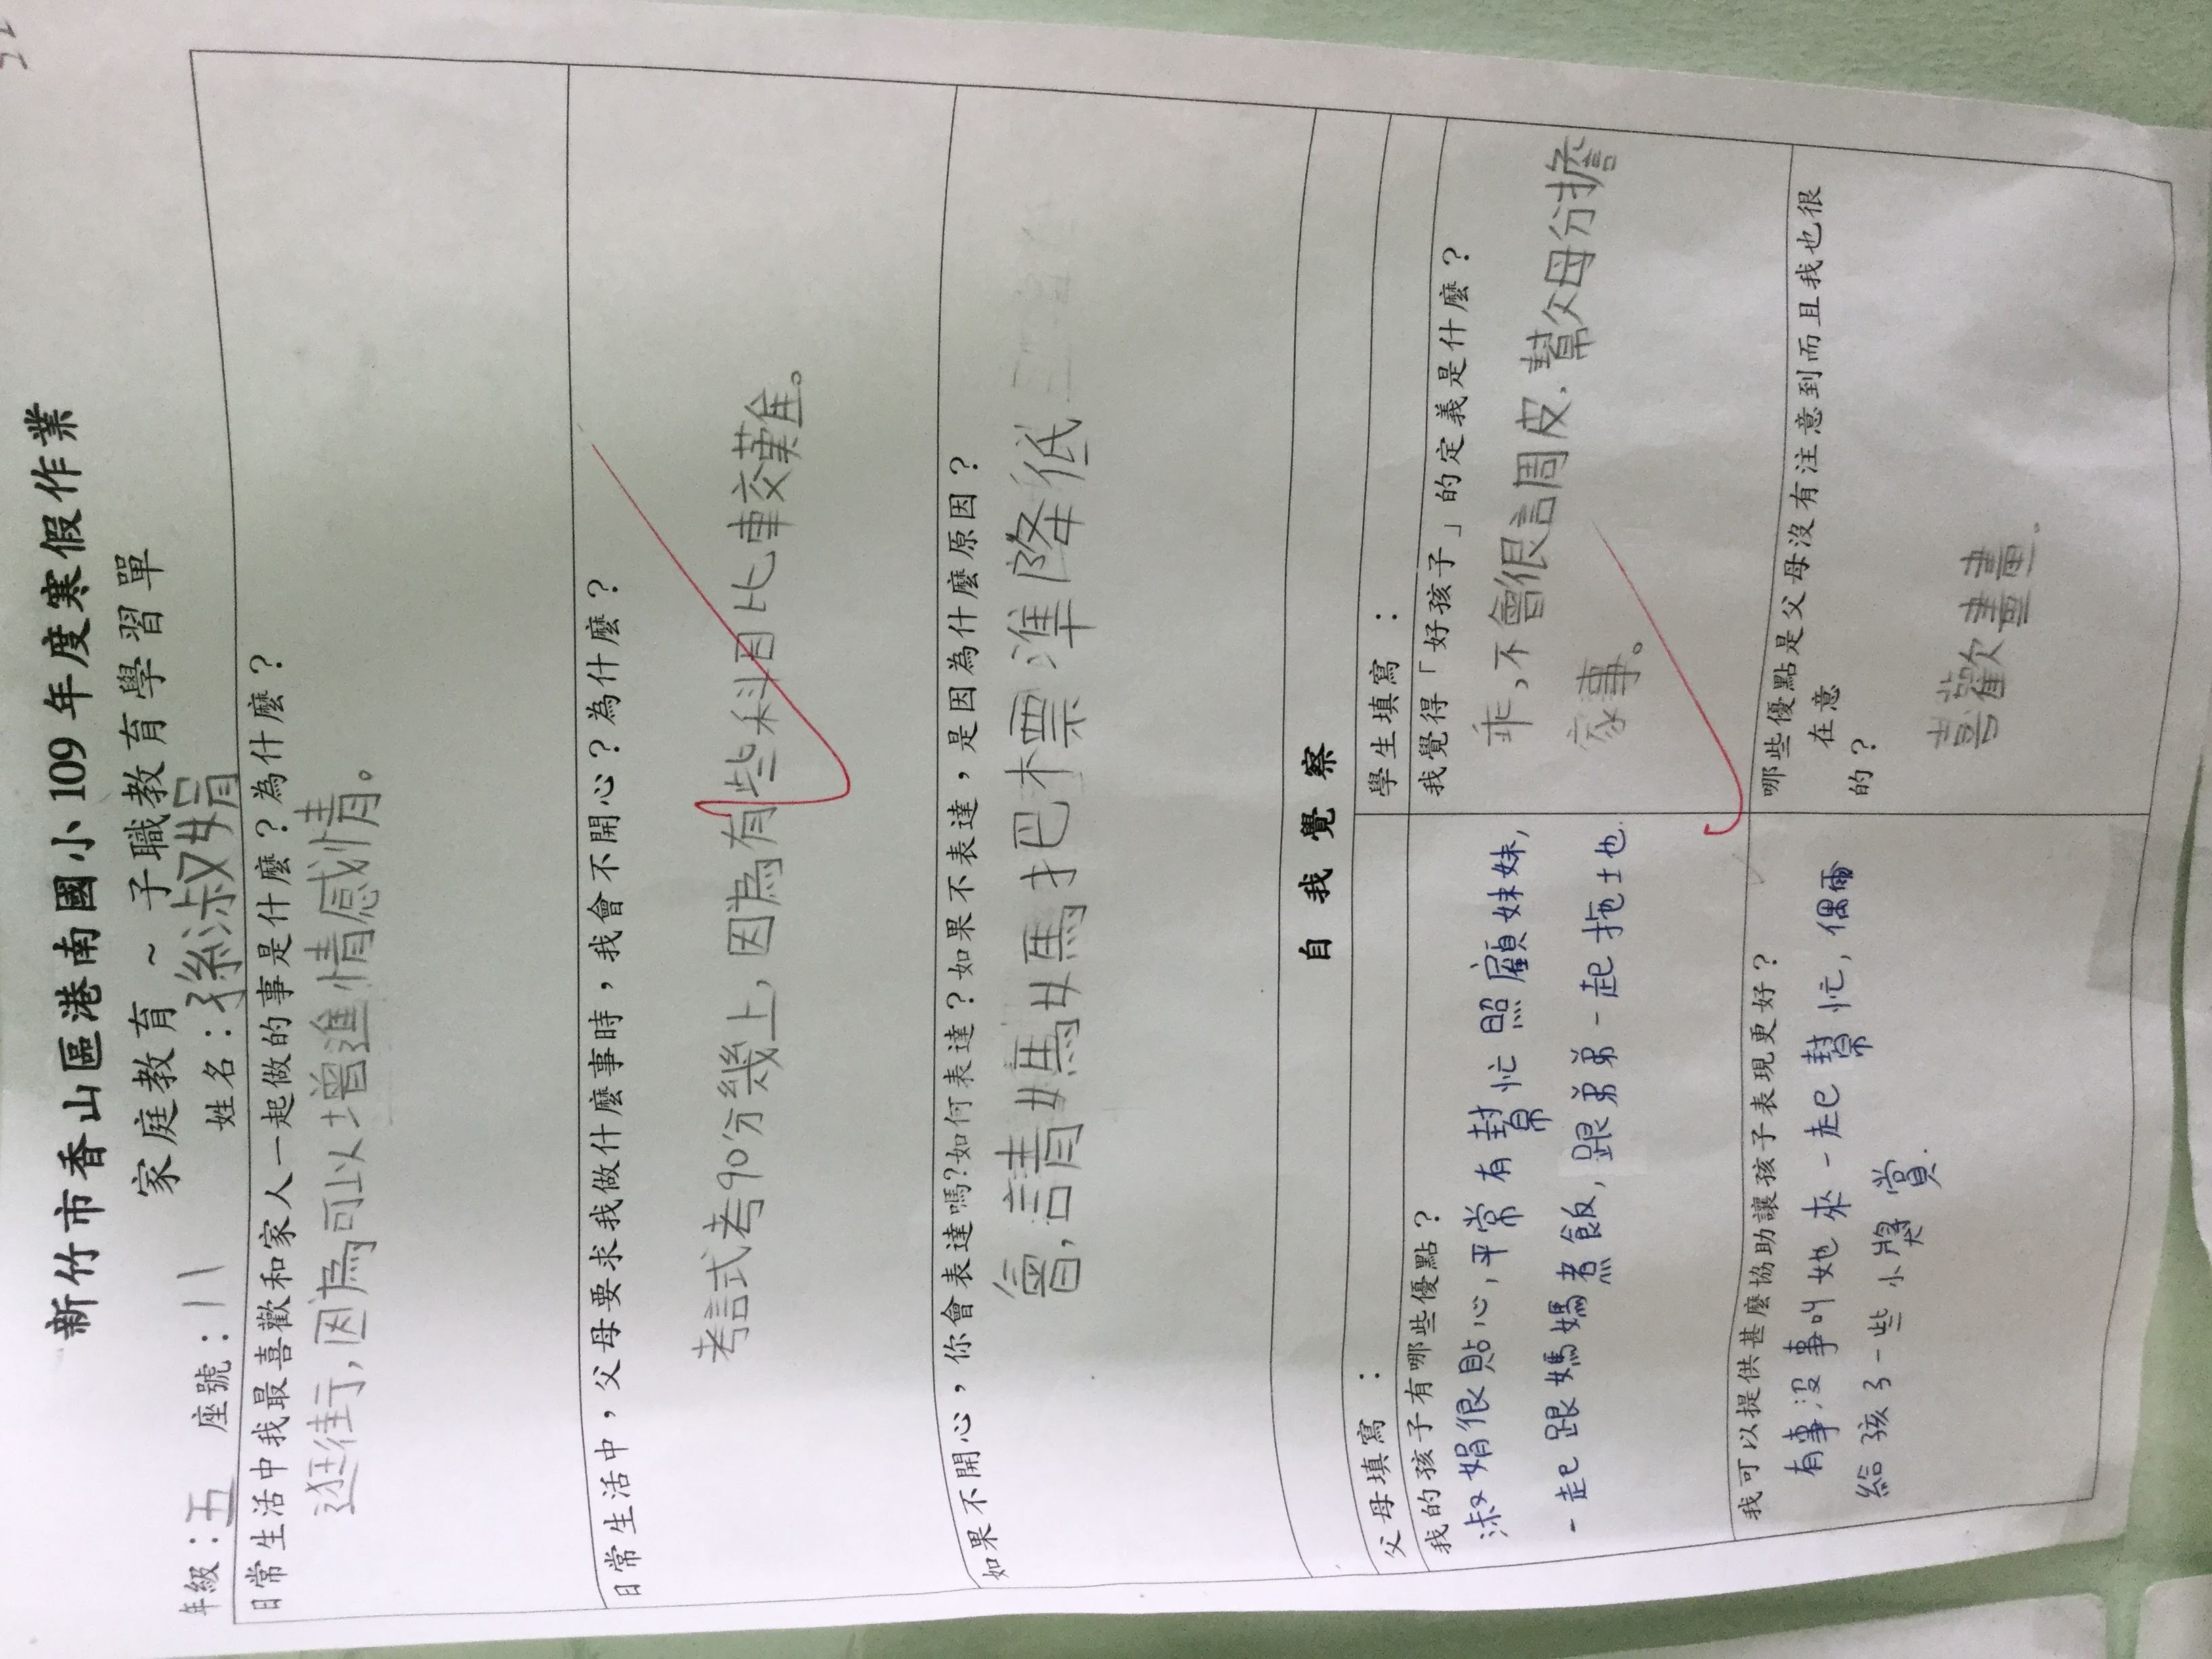 新竹市香山區港南國小109年度寒假作業
家庭教育～子職教育學習單
年級：五 座號：11 姓名：孫淑娟
日常生活中我最喜歡和家人一起做的事是什麼？為什麼？
逛街，因為可以增進情感情。
日常生活中，父母要求我做什麼事時，我會不開心？為什麼？
考試考90分幾上，因為有些科目比較難。
如果不開心，你會表達嗎?如何表達？如果不表達，是因為什麼原因？
會，請媽媽把標準降低
自我覺察
父母填寫：
學生填寫：
我的孩子有哪些優點？
淑娟很貼心，平常有幫忙照顧妹妹，
一起跟媽媽煮飯，跟弟弟一起拖地
我覺得「好孩子」的定義是什麼？
乖，不會很調皮，幫父母分擔
家事。
我可以提供甚麼協助讓孩子表現更好？
有事沒事叫她來一起幫忙，偶爾
給孩子一些小獎賞.
哪些優點是父母沒有注意到而且我也很
在意
的？
喜歡畫畫。